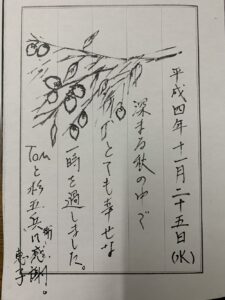 平成四年十一月二十五日(水)
深まる秋の中で
とても幸せな
一時を過しました。
Tomと
感謝。
恵子